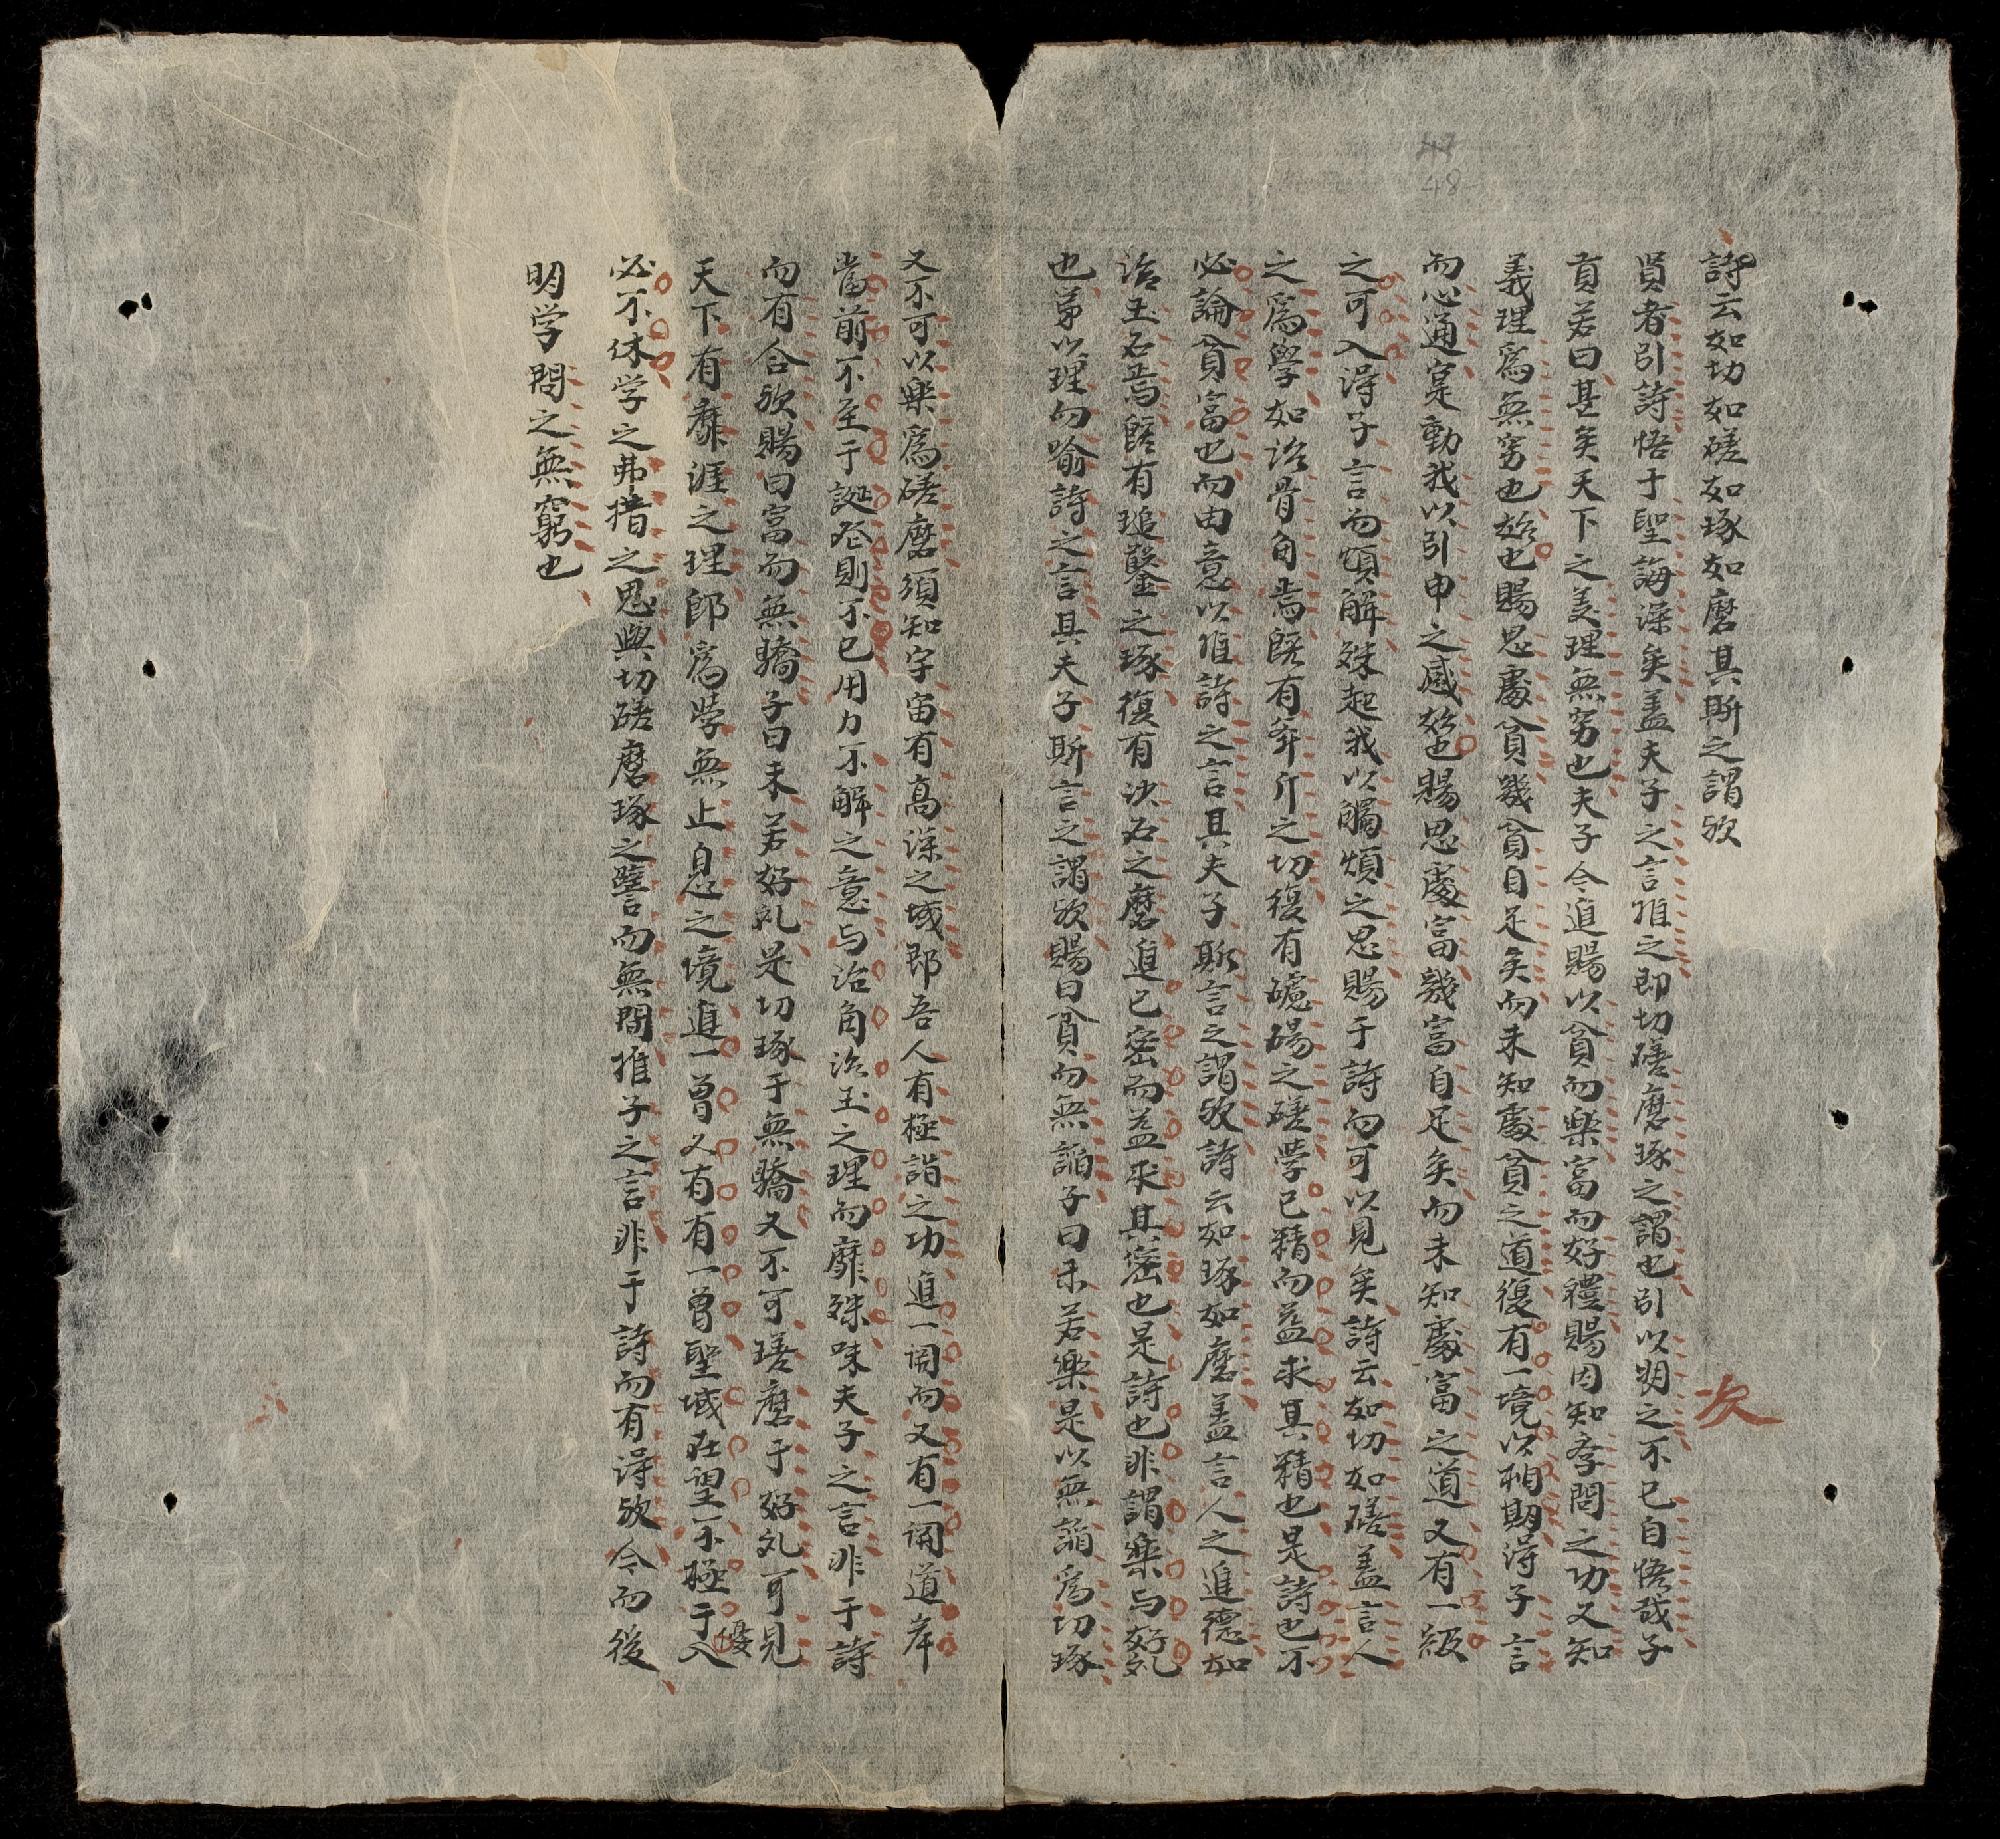 詩云如切如磋如琢如磨其斯之謂欤
次
賢者引詩悟于聖誨深矣盖夫子之言推之即切磋磨琢之謂也引以明之不已自悟哉子
貢若曰甚矣天下之美理無穷也夫子今進賜以貧而樂富而好禮賜因知斈問之功又知
義理爲無穷也始也賜思處貧幾貧自足矣而未知處貧之道復有一境以相期淂子言
而心通寔動我以引申之感始也賜思處富幾富自足矣而未知處富之道又有一級
之可入淂子言而頓解殊起我以觸類之思賜于詩而可以見矣詩云如切如磋盖言人
之爲學如治骨角焉既有斧斤之切復有鑢碭之磋學已精而益求其精也是詩也不
必論貧富也而由意以推詩之言其夫子斯言之謂欤詩云如琢如磨盖言人之進德如
治玉石焉既有追鑿之琢復有沙石之磨進已密而益求其密也是詩也非謂樂与好礼
也苐以理而喻詩之言其夫子斯言之謂欤賜曰貧而無諂子曰未若樂是以無諂爲切琢
又不可以樂爲磋磨須知宇宙有高深之域即吾人有極詣之功進一関而又有一関道岸
當前不至于誕登則不已用力不觧之意与治角治玉之理而靡殊味夫子之言非于詩
而有合欤賜曰富而無驕子曰未若好礼是切琢于無驕又不可瑳磨于好礼可見
天下有靡涯之理即爲學無止息之境進一曾又有有一曾聖域在望不極于優入
必不休学之弗措之思與切磋磨琢之譬而無間推子之言非于詩而有淂欤今而後
明学問之無窮也
47
48